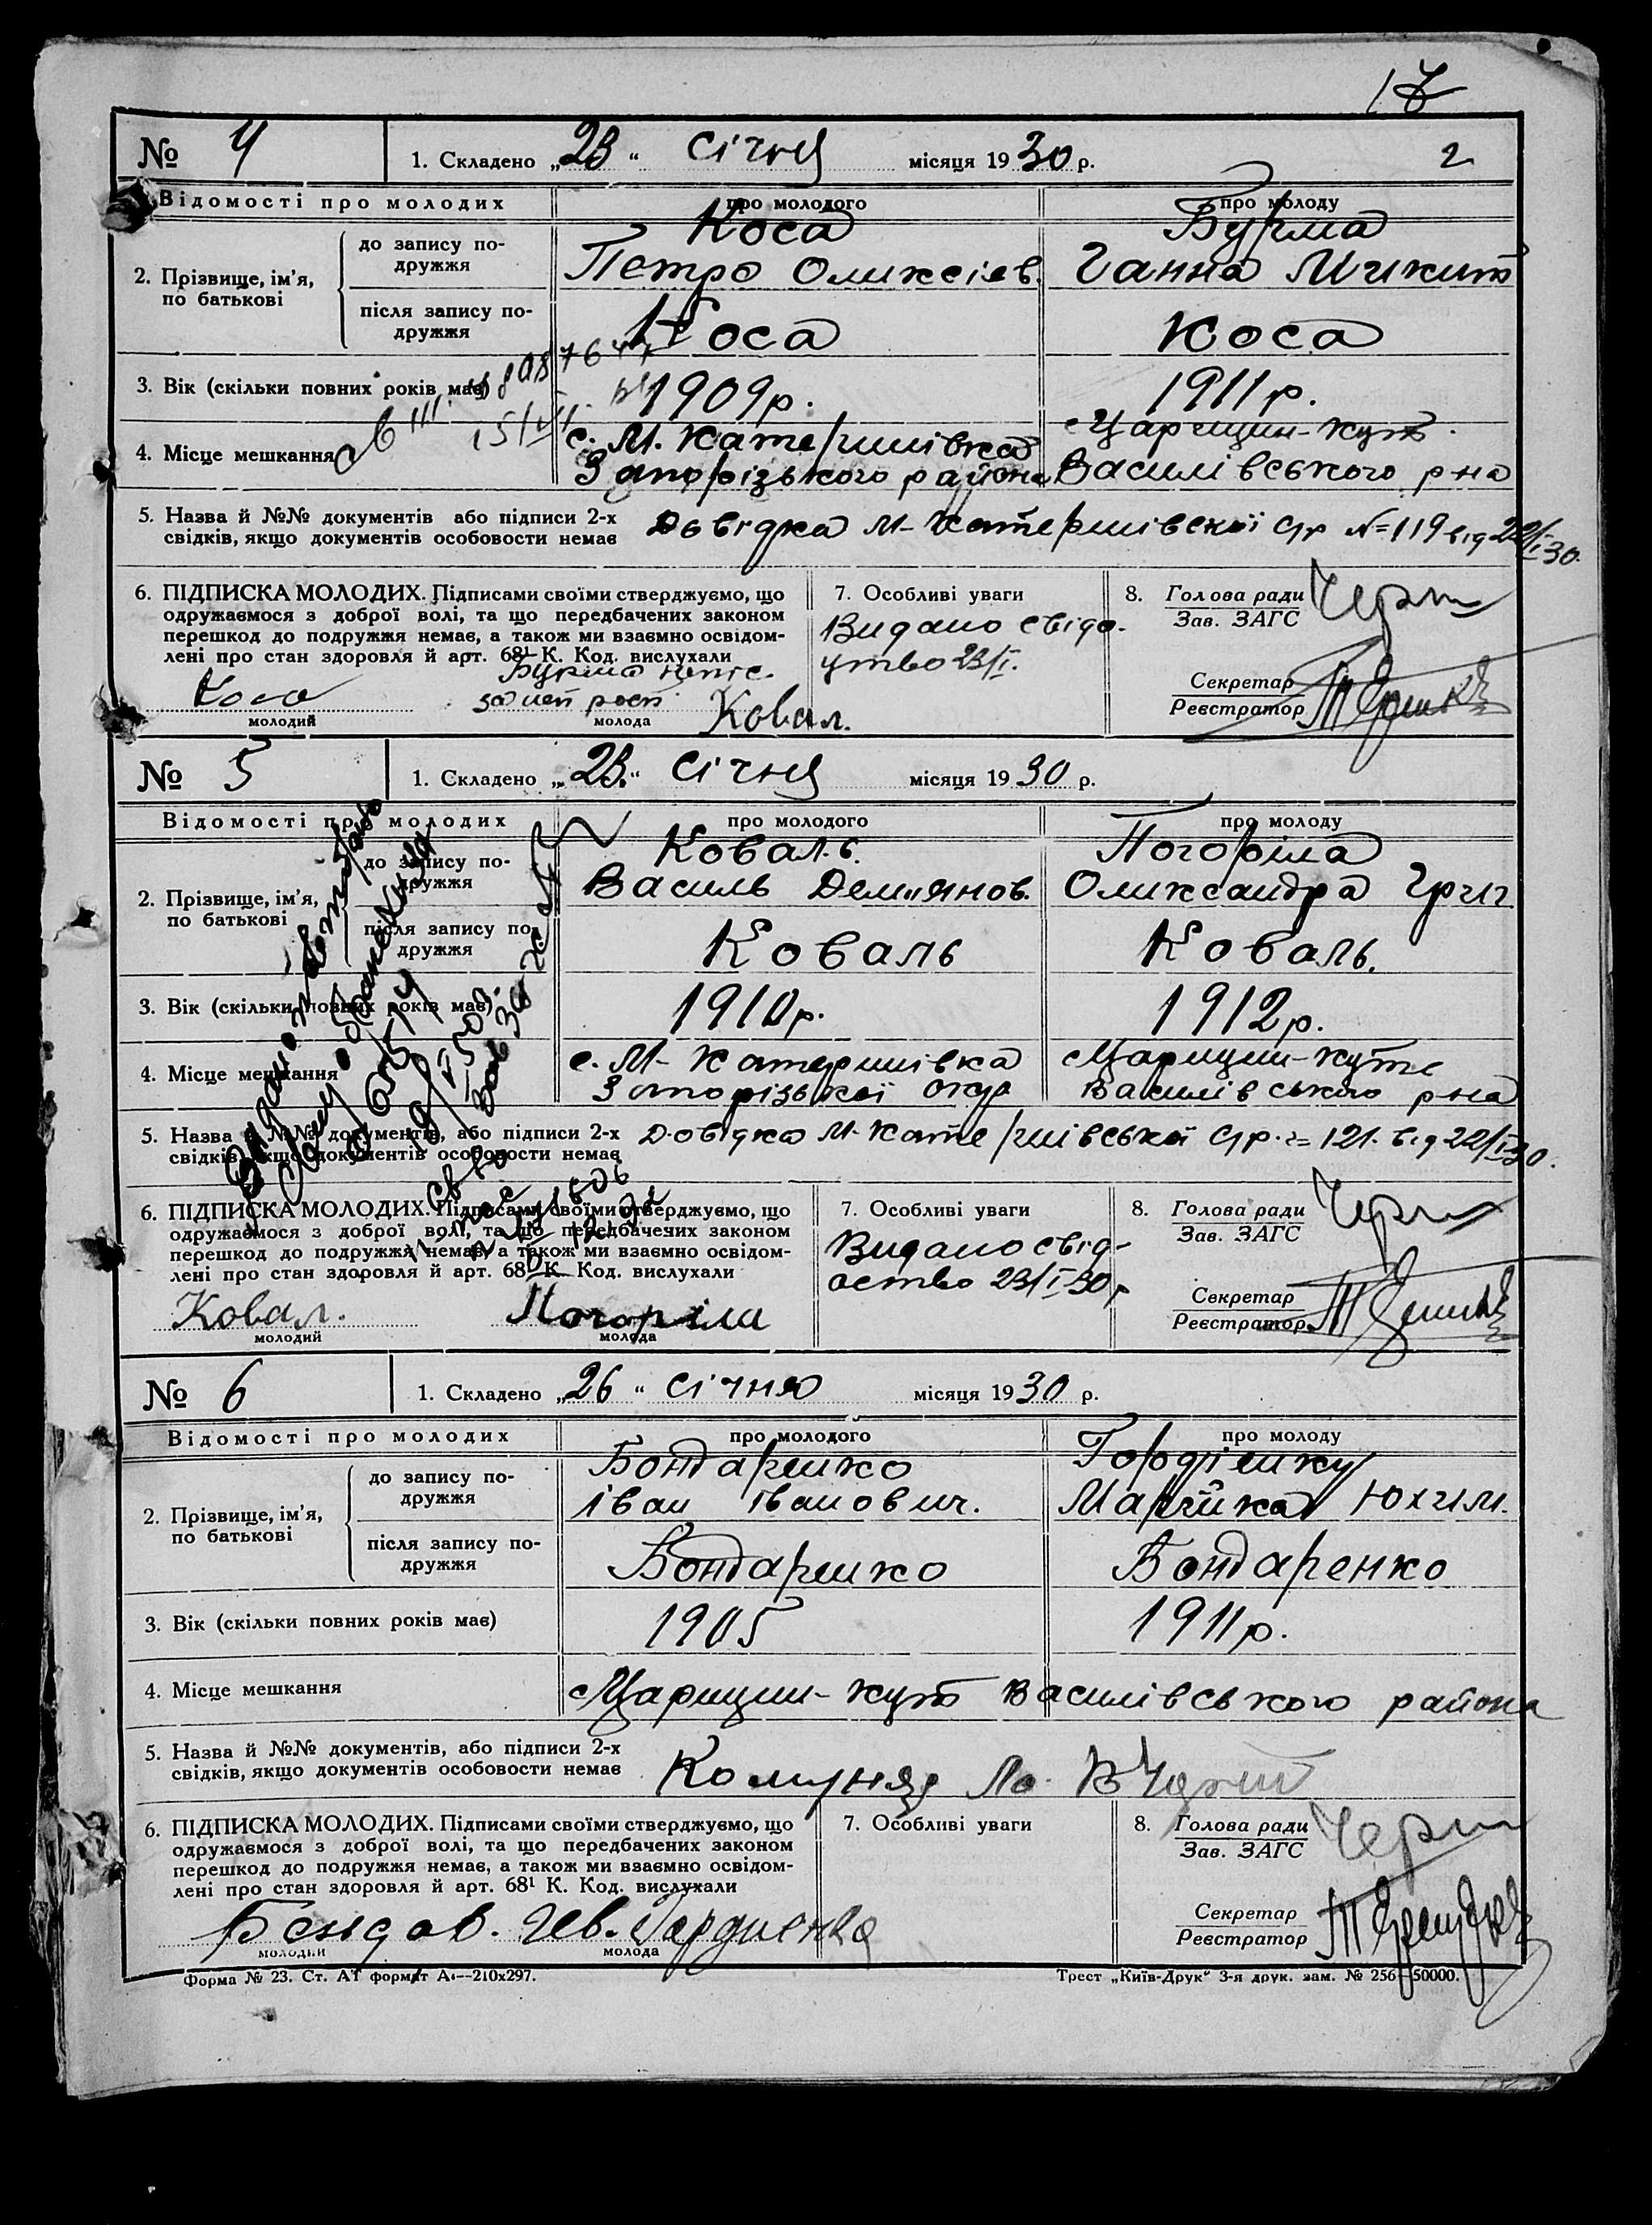 17
№ 4 1. Складено „23“ січня місяця 1930 р. 2
Відомості про молодих про молодого про молоду
2. Прізвище, ім’я, по батькові
до запису подружжя Коса Бурма
Петро Олексієв. Ганна Микит
після запису подружжя Коса Коса
3. Вік (скільки повних років має) 1909р. 1911р.
4. Місце мешкання с. М. Катеринівка Царицин-Кут
Запорізького района Василівського рна
5. Назва й №№ документів або підписи 2-х Довідка М-Катеринівської с/р №=119 від 22/I-30.
свідків, якщо документів особовости немає
6. ПІДПИСКА МОЛОДИХ. Підписами своїми стверджуємо, що
одружаємося з доброї волі, та що передбачених законом
перешкод до подружжя немає, а також ми взаємно освідом-
лені про стан здоровля й арт. 68¹ К. Код. вислухали
Коса Бурма
молодий молода Ковал.
7. Особливі уваги
Видано свідо-
цтво 23/I.
8. Голова ради
Зав. ЗАГС
Секретар
Реєстратор
№ 5 1. Складено „23.“ січня місяця 1930 р.
Відомості про молодих про молодого про молоду
2. Прізвище, ім’я, по батькові
до запису подружжя Коваль Погоріла
Василь Дем'янов. Олександра Григ.
після запису подружжя Коваль Коваль.
3. Вік (скільки повних років має) 1910р. 1912р.
4. Місце мешкання с. М-Катеринівка Царицин-Куте
Запорізької окр Василівського рна
5. Назва й №№ документів, або підписи 2-х Довідка М-Катеринівської с/р.= 121. від 22/I-30.
свідків, якщо документів особовости немає
6. ПІДПИСКА МОЛОДИХ. Підписами своїми стверджуємо, що
одружаємося з доброї волі, та що передбачених законом
перешкод до подружжя немає, а також ми взаємно освідом-
лені про стан здоровля й арт. 68¹ К. Код. вислухали
Ковал. Погоріла
молодий молода
7. Особливі уваги
Видано свід-
оство 23/I 30р
8. Голова ради
Зав. ЗАГС
Секретар
Реєстратор
№ 6 1. Складено „26“ січня місяця 1930 р.
Відомості про молодих про молодого про молоду
2. Прізвище, ім’я, по батькові
до запису подружжя Бондаренко Гордієнку
Іван Іванович. Марійка Юхим.
після запису подружжя Бондаренко Бондаренко
3. Вік (скільки повних років має) 1905 1911р.
4. Місце мешкання Царицин-Кут Василівського района
5. Назва й №№ документів, або підписи 2-х
свідків, якщо документів особовости немає
6. ПІДПИСКА МОЛОДИХ. Підписами своїми стверджуємо, що
одружаємося з доброї волі, та що передбачених законом
перешкод до подружжя немає, а також ми взаємно освідом-
лені про стан здоровля й арт. 68¹ К. Код. вислухали
молодий молода
7. Особливі уваги
8. Голова ради
Зав. ЗАГС
Секретар
Реєстратор
Форма № 23. Ст. АТ формат А₄—210х297. Трест „Київ-Друк“ 3-я друк. зам. № 256—50000.